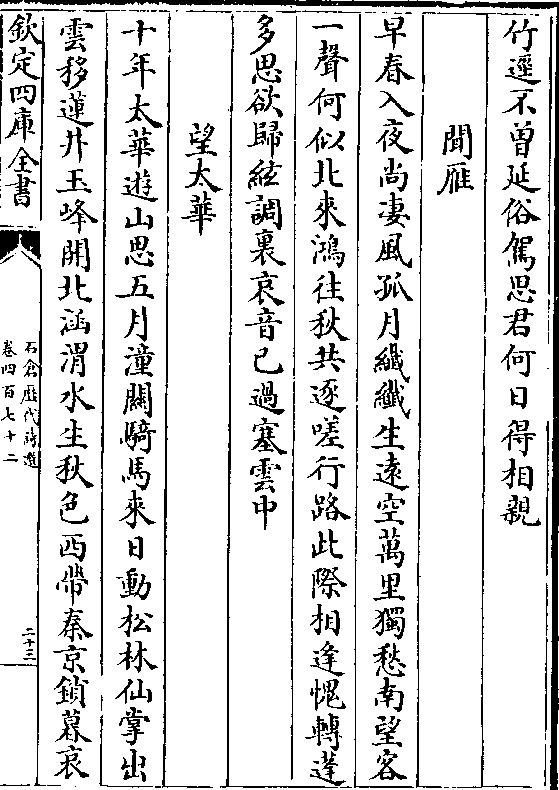 竹邊不曾延俗駕思君何日得相親
聞雁
早春入夜尚凄風孤月纖纖生遠空萬里獨愁南望客
一聲何似北來鴻往秋共逐嗟行路此際相逢愧轉蓬
多思欲歸絃調裏哀音已過塞雲中
望太華
十年太華遊山思五月潼關騎馬來日動松林仙掌出
雲移蓮井玉峰開北涵渭水生秋色西帶秦京鎖暮哀
欽定四庫全書
石倉歷代詩選
卷四百七十二
二十三